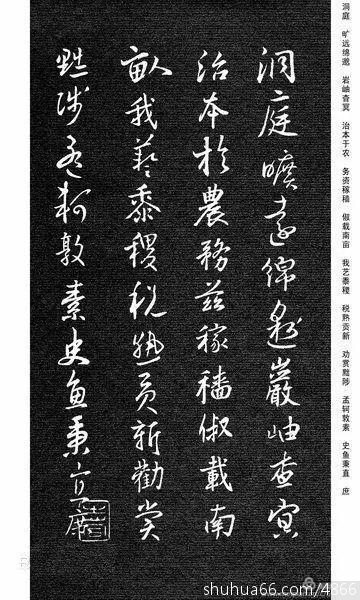 洞庭 旷远绵邈 岩岫杳冥 治本于农 务资稼穑 俶载南亩 我艺黍稷 税熟贡新 劝赏黜陟 孟轲敦素 史鱼秉直 庶
洞庭曠遠綿邈巖岫杳冥
治本於農務茲稼穡俶載南
畝我藝黍稷稅熟貢新勸賞
黜陟孟軻敦素史魚秉直庶
shuhua66.com/4866